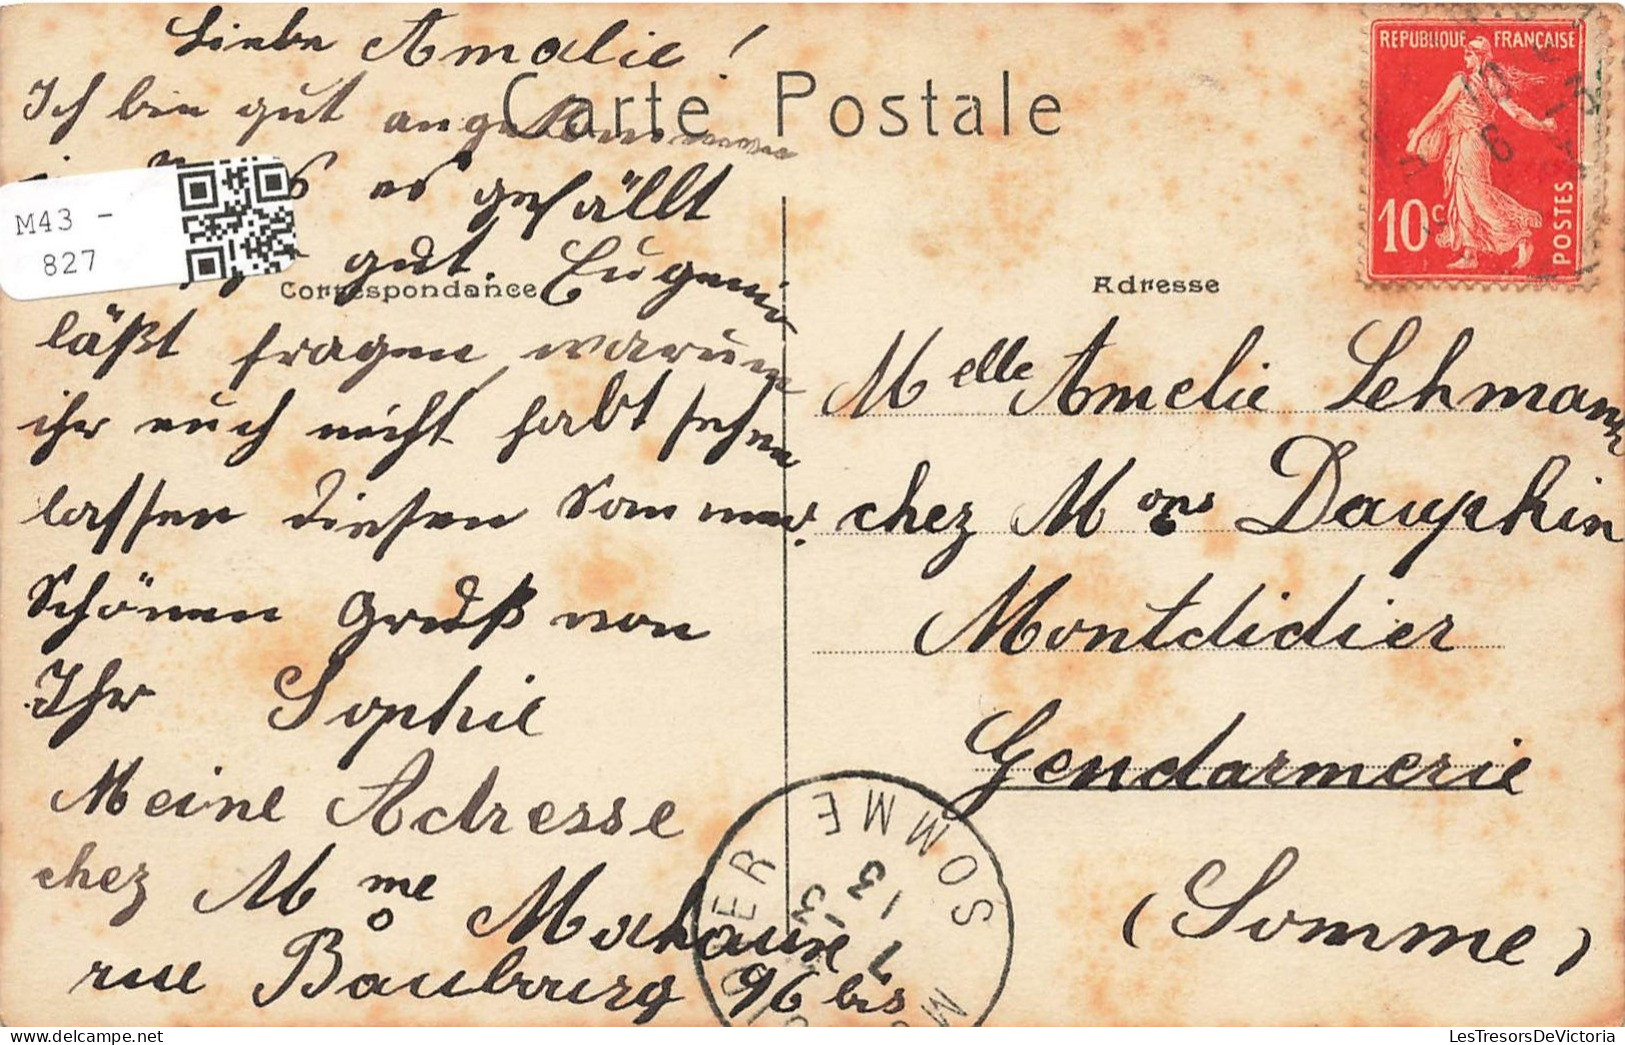 Liebe Amalie!
Ich bin gut angekommen
es gefällt
gut. Eugenie
läßt fragen warum
ihr euch nicht habt sehen
lassen diesen Sommer.
Schönen Gruß von
Ihr Sophie
Meine Adresse
chez Mme
rue Baubourg 96 bis
M43 -
827
Carte Postale
Correspondance
Adresse
REPUBLIQUE FRANÇAISE
10c
POSTES
Melle Amelie Lehmann
chez Mons Dauphin
Montdidier
Gendarmerie
(Somme)
SOMME
LesTresorsDeVictoria